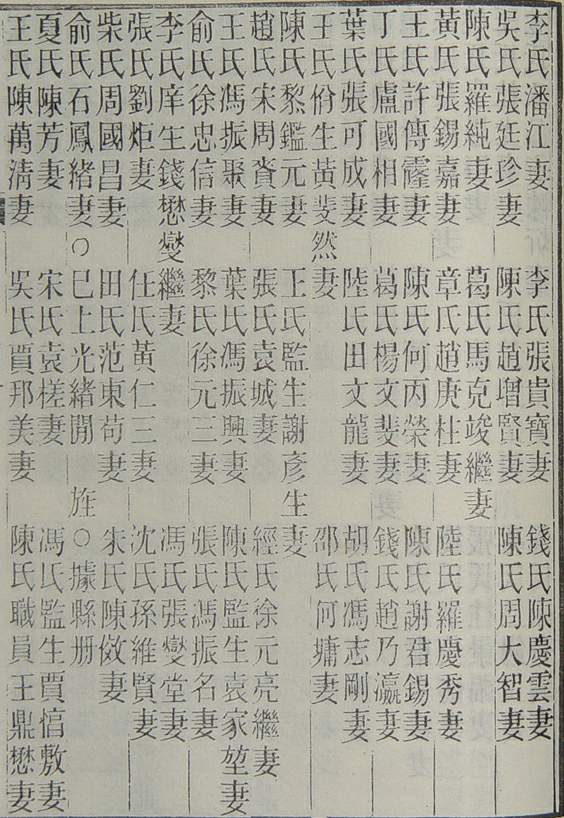 李氏潘江妻 李氏張貴寶妻 錢氏陳慶雲妻
吳氏張廷珍妻 陳氏趙增賢妻 陳氏周大智妻
陳氏羅純妻 葛氏馬克竣繼妻
黃氏張錫嘉妻 章氏趙庚杜妻 陸氏羅慶秀妻
王氏許傳霳妻 陳氏何丙榮妻 陳氏謝君錫妻
丁氏盧國相妻 葛氏楊文斐妻 錢氏趙乃瀛妻
葉氏張可成妻 陸氏田文龍妻 胡氏馮志剛妻
王氏佾生黃斐然妻 邵氏何墉妻
陳氏黎鑑元妻 王氏監生謝彥生妻
趙氏宋周賚妻 張氏袁城妻 經氏徐元亮繼妻
王氏馮振聚妻 葉氏馮振興妻 陳氏監生袁家堃妻
俞氏徐忠信妻 黎氏徐元三妻 張氏馮振名妻
李氏庠生錢懋燮繼妻 馮氏張燮堂妻
張氏劉炬妻 任氏黃仁三妻 沈氏孫維賢妻
柴氏周國昌妻 田氏范東苟妻 朱氏陳傚妻
俞氏石鳳緒妻○巳上光緒閒 旌○據縣册
夏氏陳芳妻 宋氏袁槎妻 馮氏監生賈敷妻
王氏陳萬淸妻 吳氏賈邦美妻 陳氏職員王鼎懋妻